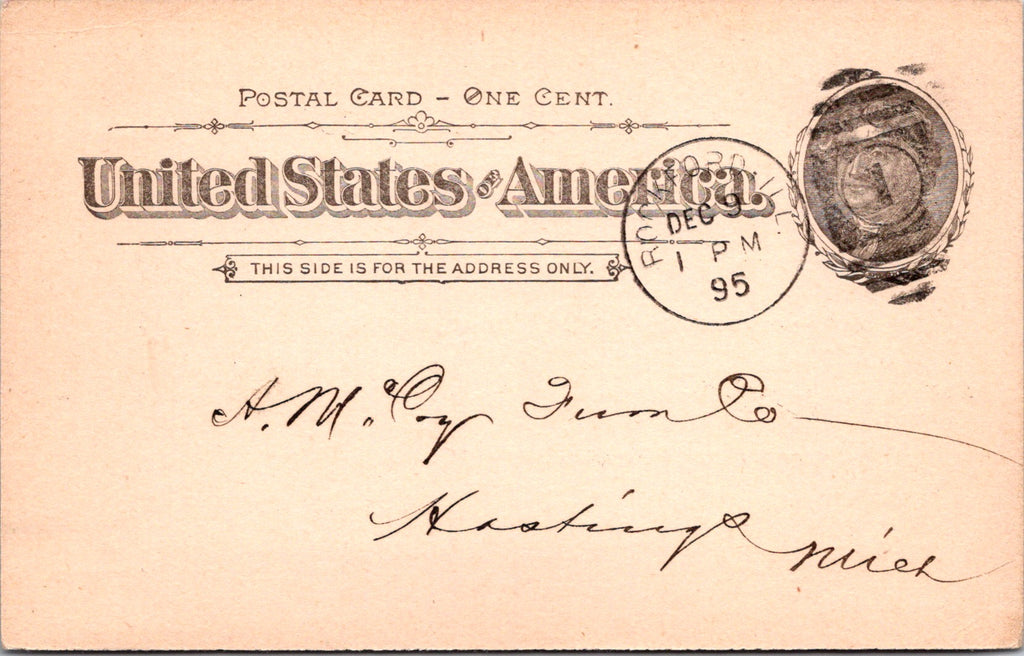 POSTAL CARD – ONE CENT.
United States OF America.
THIS SIDE IS FOR THE ADDRESS ONLY.
ROCKFORD ILL.
DEC 9
1 PM
95
1
A. McCoy Furn Co
Hastings Mich